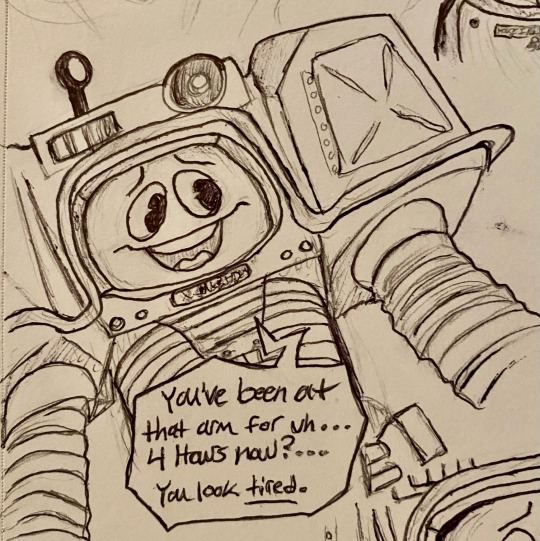 You've been at
that arm for uh...
4 Hours now?...
You look tired.